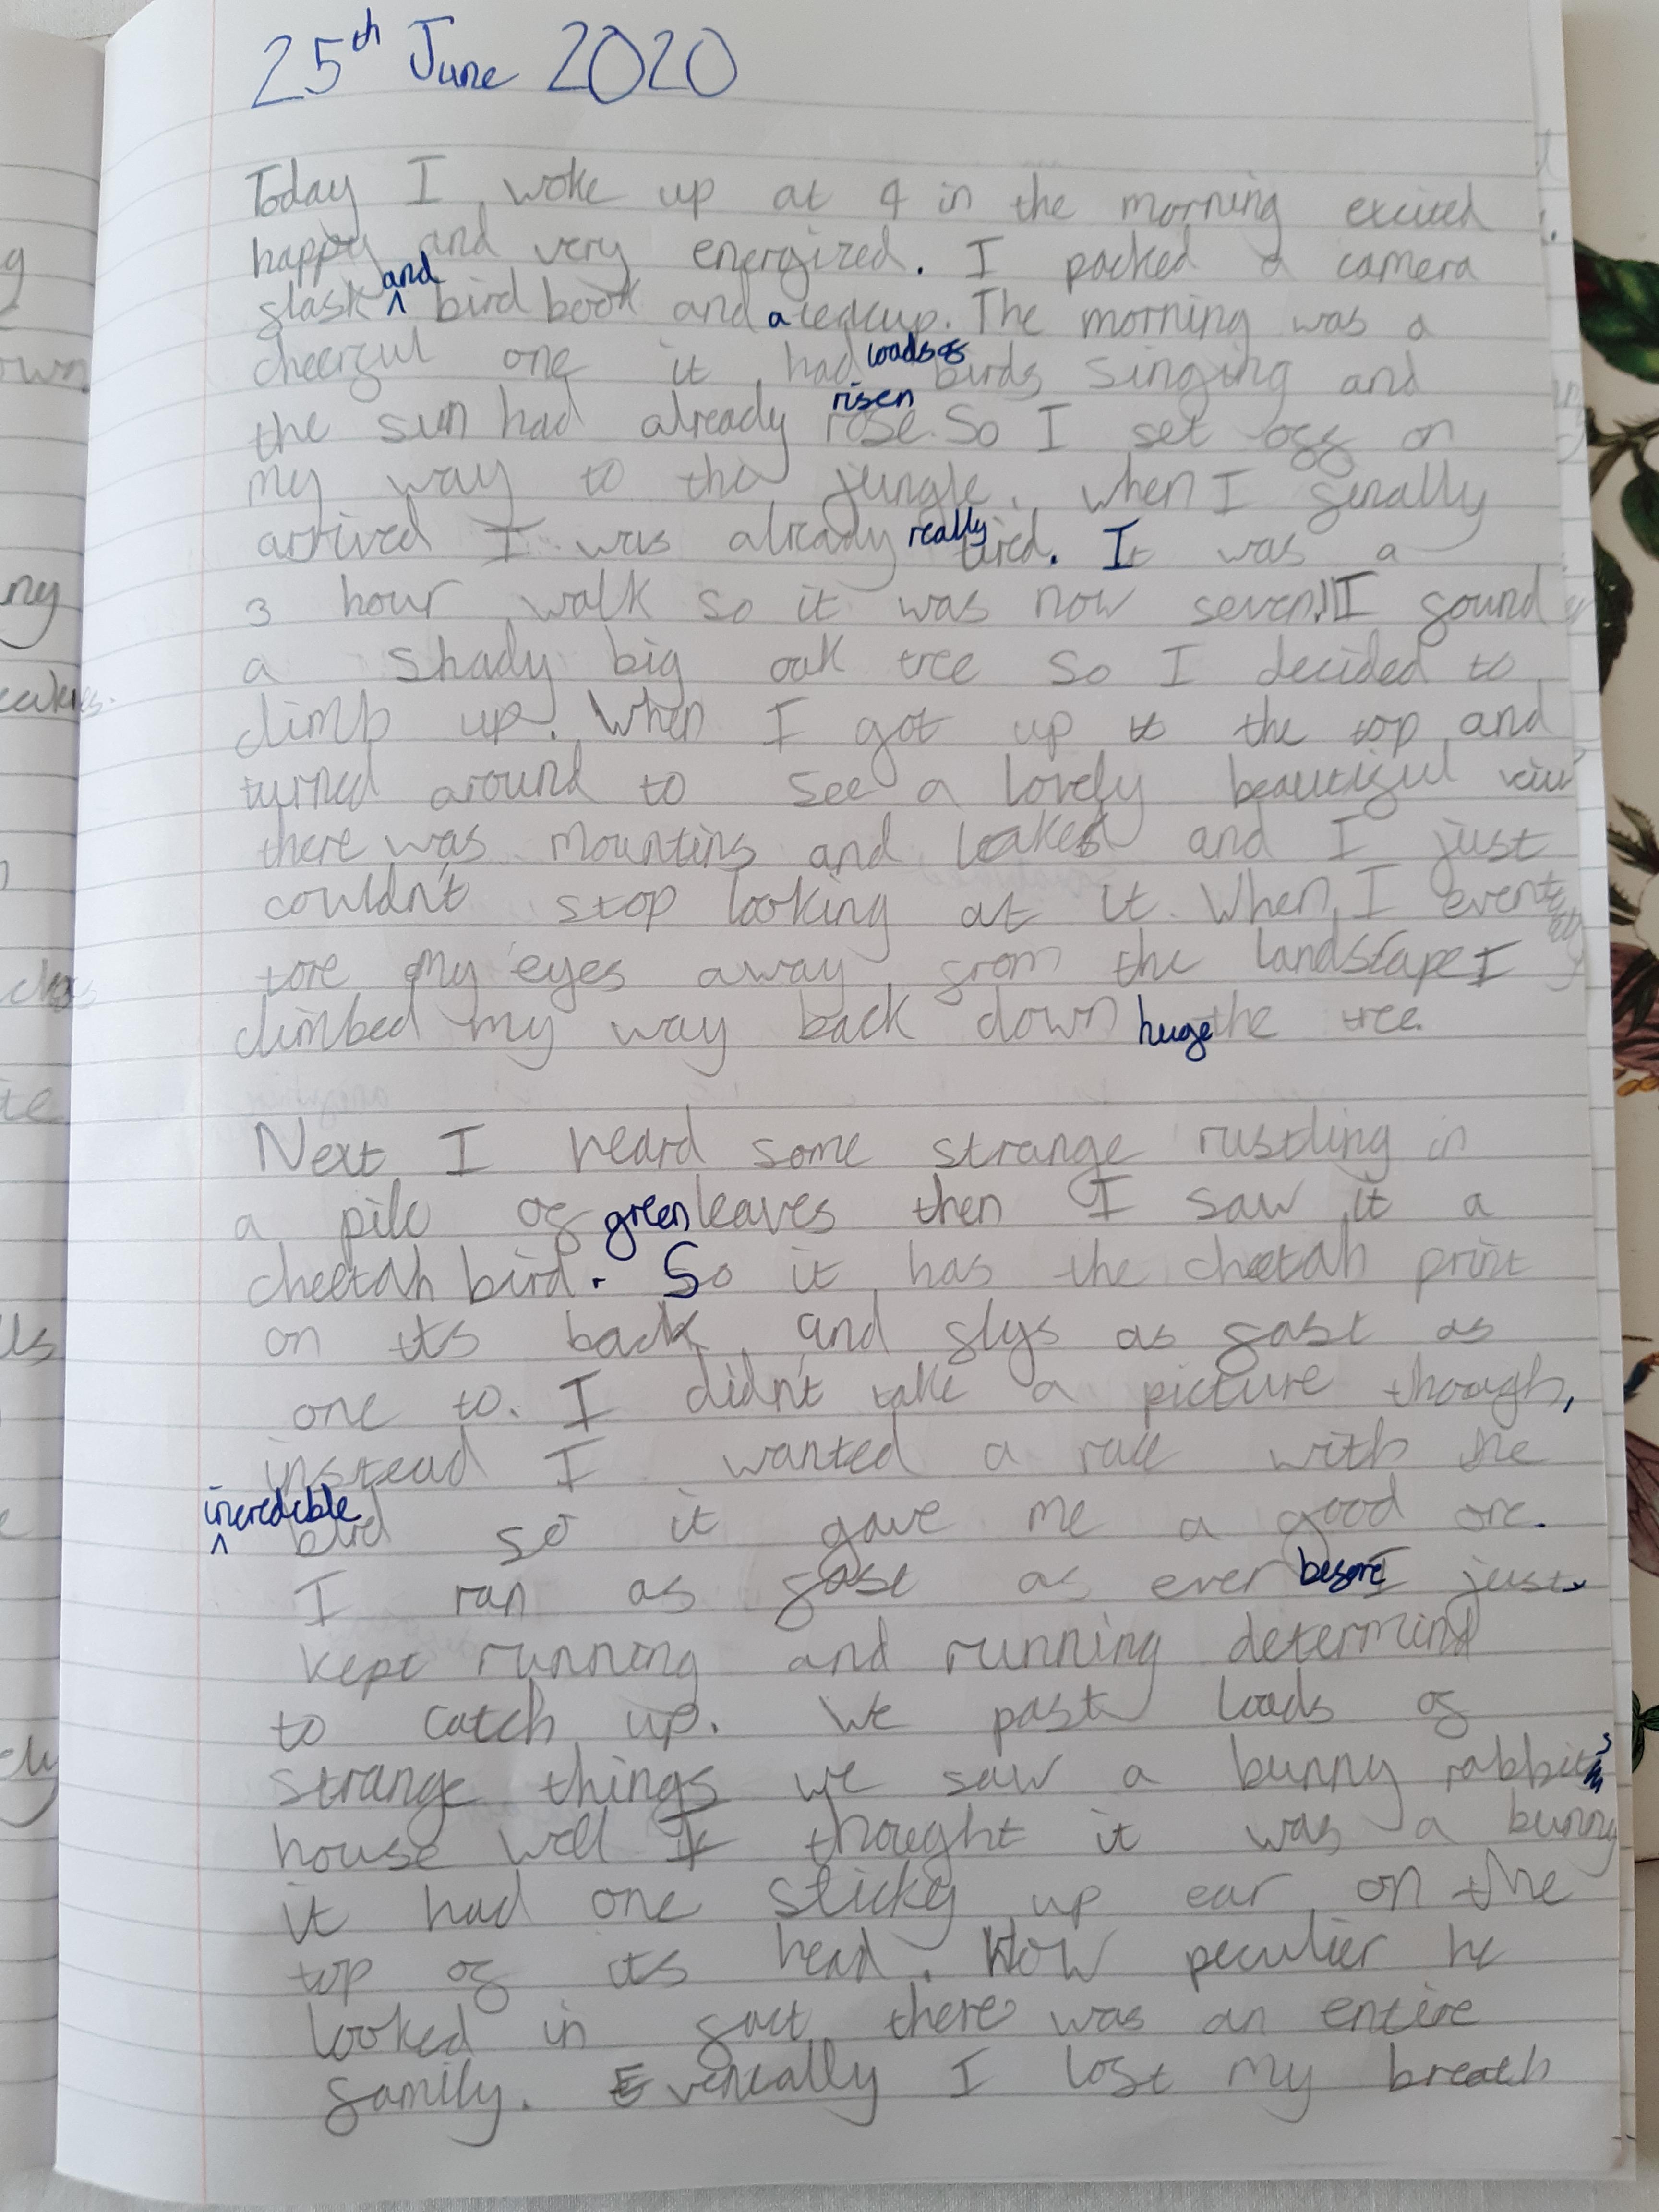 25th June 2020
Today I woke up at 4 in the morning excited
happy and very energized. I packed a camera
flask and bird book and a teacup. The morning was a
cheerful one it had loads of birds singing and
the sun had already rose risen. So I set off on
my way to the jungle. When I finally
arrived I was already really tired. It was a
3 hour walk so it was now seven. I found
a shady big oak tree so I decided to
climb up. When I got up to the top and
turned around to see a lovely beautiful
there was mountins and and I just
couldn't stop looking at it. When I
tore my eyes away from the landscape I
climbed my way back down huge the tree.
Next I heard some strange rustling in
a pile of green leaves then I saw it a
cheetah bird. So it has the cheetah print
on its back and flys as fast as
one to. I didn't take a picture though,
instead I wanted a race with the
incredible bird so it gave me a good one.
I ran as fast as ever before I just
kept running and running determind
to catch up. We past loads of
strange things we saw a bunny rabbits
house well I thought it was a bunny
it had one sticky up ear on the
top of its head. How peculier he
looked in fact there was an entire
family. Eventually I lost my breath